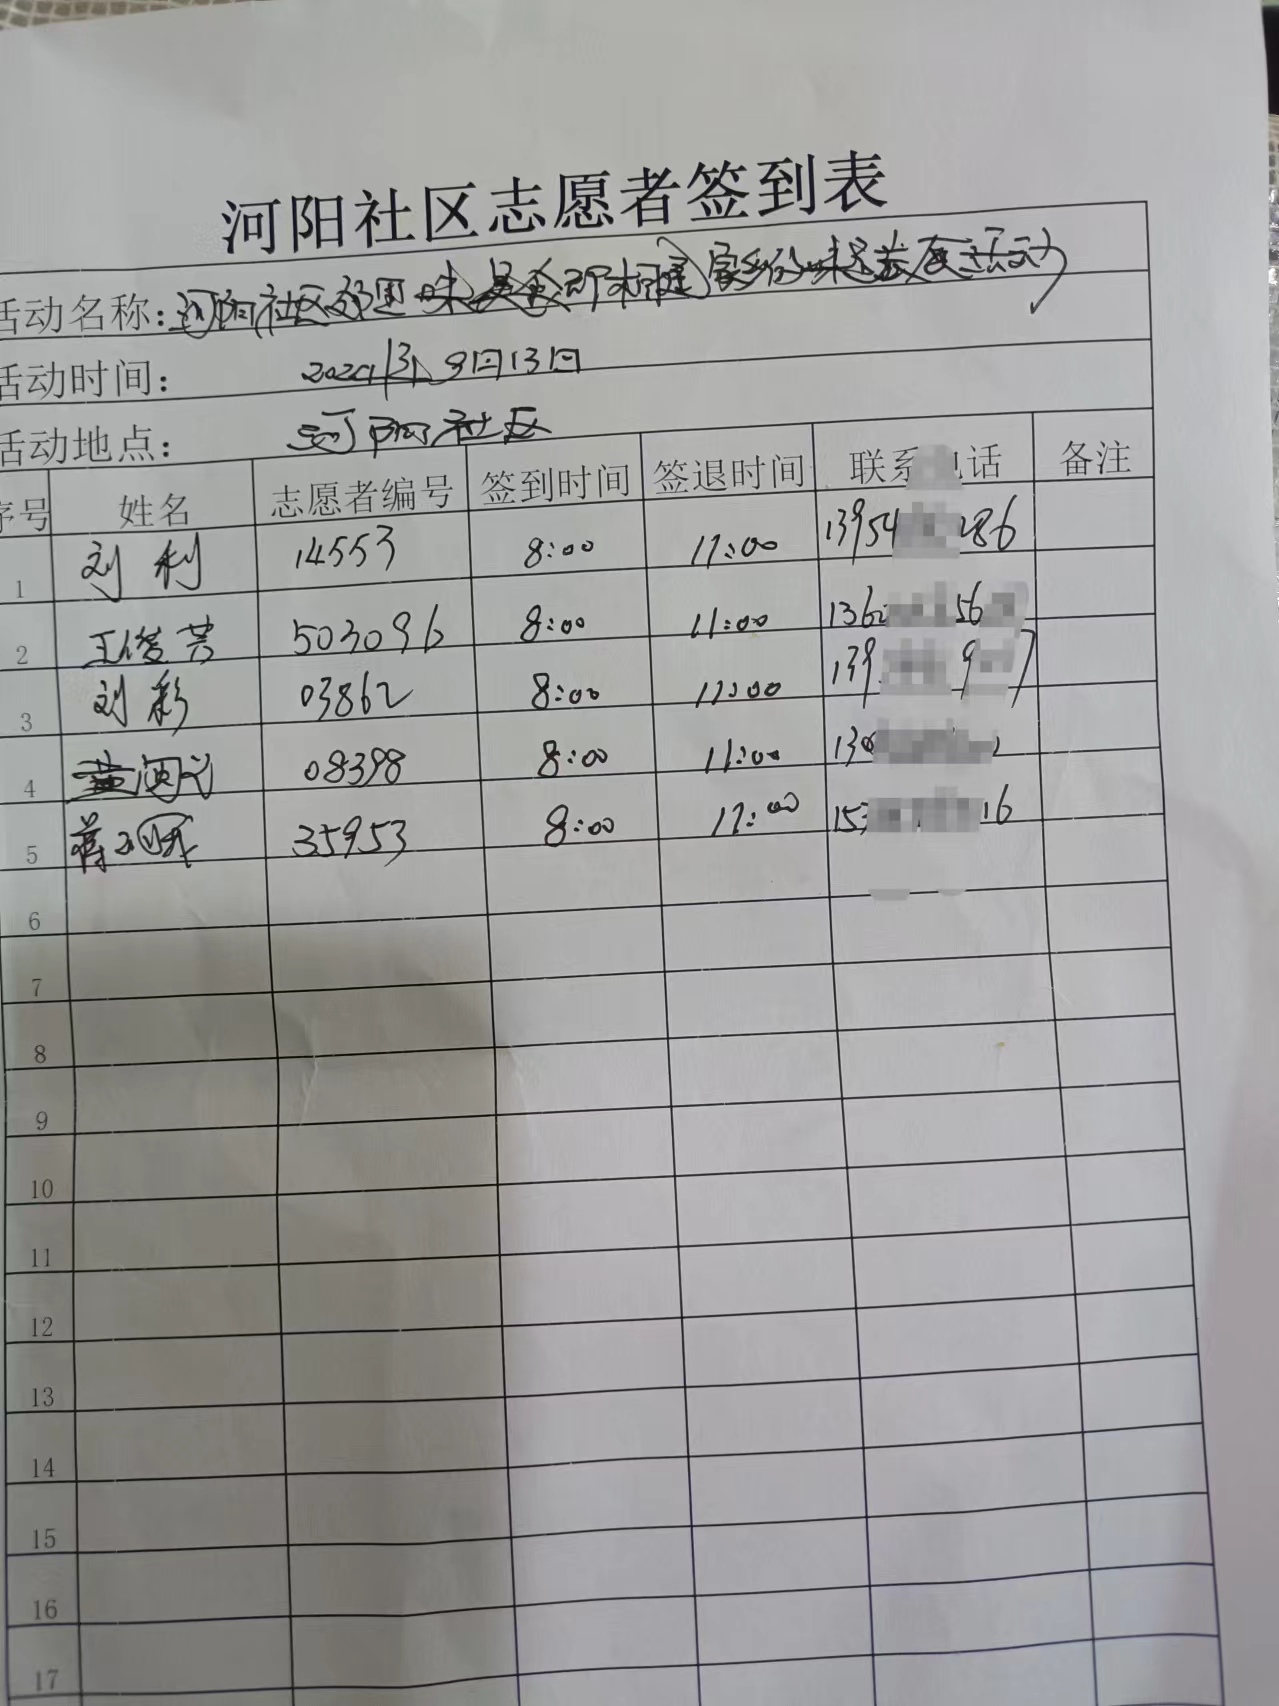 河阳社区志愿者签到表
活动名称：河阳社区
活动时间： 9月13日
活动地点： 河阳社区
序号 姓名 志愿者编号 签到时间 签退时间 联系 话 备注
1 刘利 14553 8:00 11:00 13954 286
2 王俊芳 503096 8:00 11:00 136 56
3 刘彩 03862 8:00 11:00 139 9 7
4 08398 8:00 11:00 13
5 蒋 35953 8:00 11:00 15 16
6
7
8
9
10
11
12
13
14
15
16
17